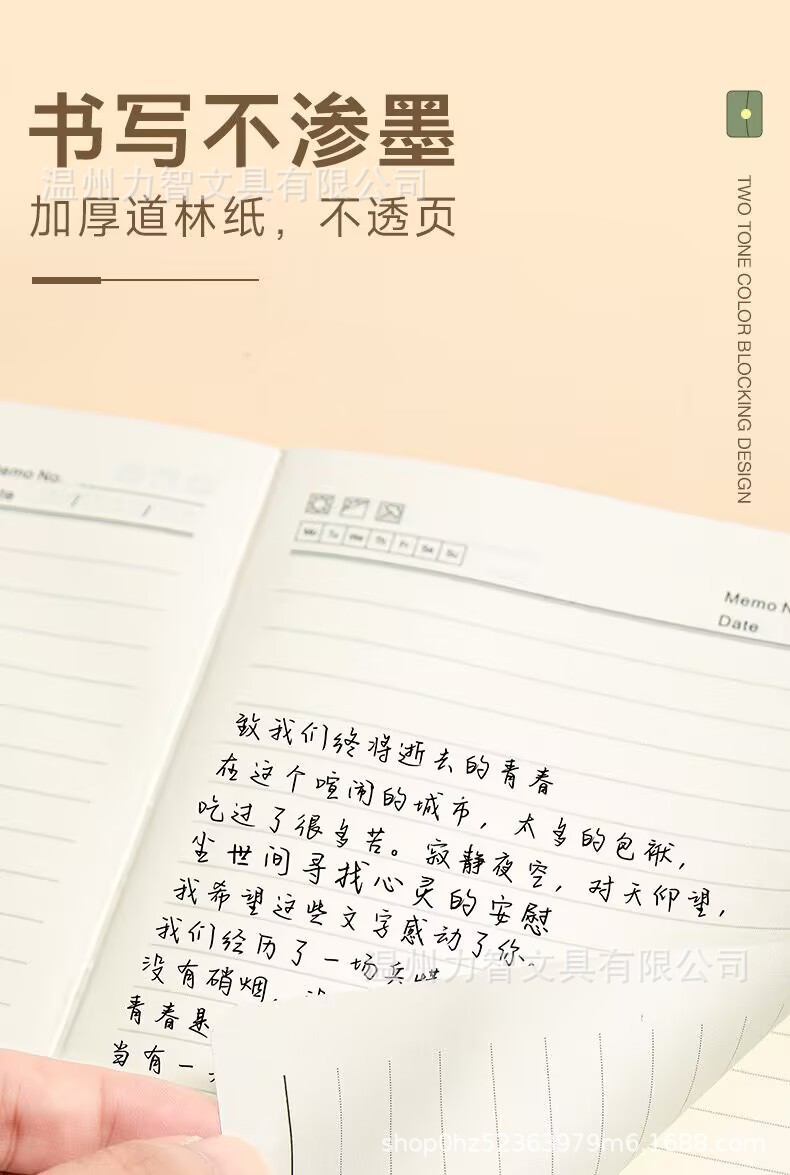 书写不渗墨
温州力智文具有限公司
加厚道林纸，不透页
TWO TONE COLOR BLOCKING DESIGN
Memo No.
Mo Tu We Th Fr Sa Su
Memo N
Date
致我们终将逝去的青春
在这个喧闹的城市，太多的包袱，
吃过了很多苦。寂静夜空，对天仰望，
尘世间寻找心灵的安慰
我希望这些文字感动了你。
我们经历了一场兵
没有硝烟，
青春是
当有一
温州力智文具有限公司
shop0hz52363979m6.1688.com